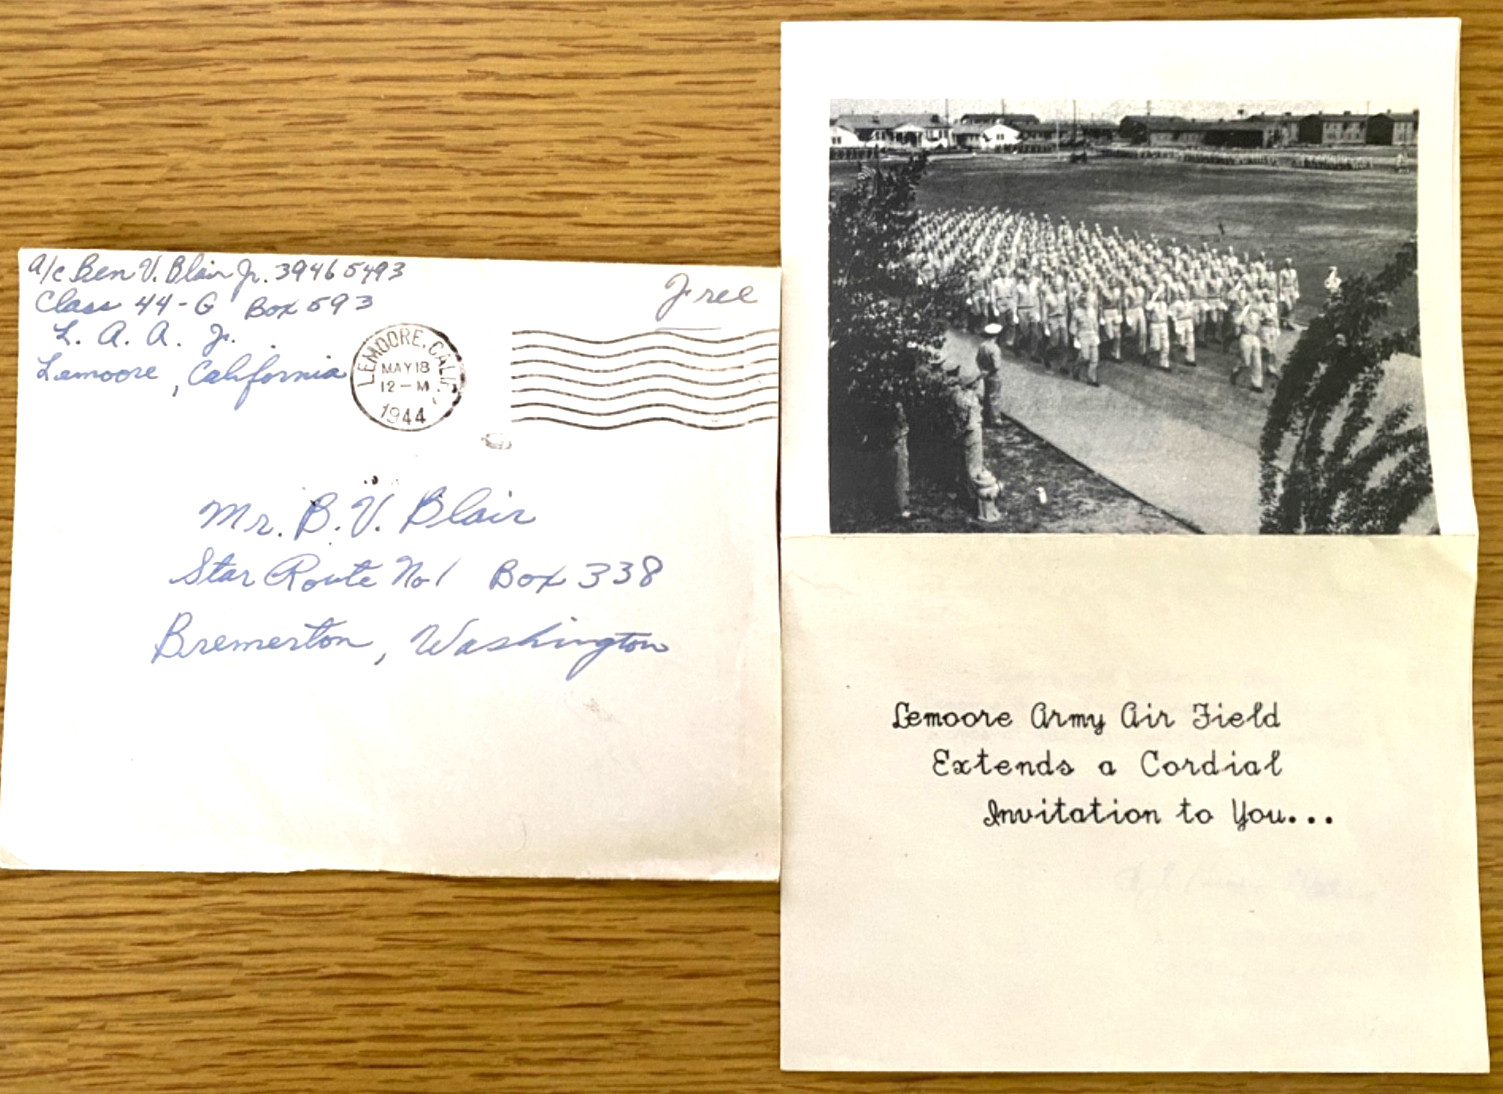 a/c Ben V. Blair Jr. 39465493
Class 44-G Box 593
L. A. A. F.
Lemoore, California
Free
LEMOORE, CALIF.
MAY 18
12-M
1944
Mr. B. V. Blair
Star Route No 1 Box 338
Bremerton, Washington
Lemoore Army Air Field
Extends a Cordial
Invitation to You...